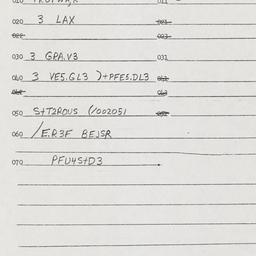 020 3 LAX 021
022 023
030 3 GPA.V3 031
040 3 VE5.GL3 )+PFES.DL3 041
050 S+T2ROUS (/002051
060 /E.R3F BEJSR
070 PFU4S+D3